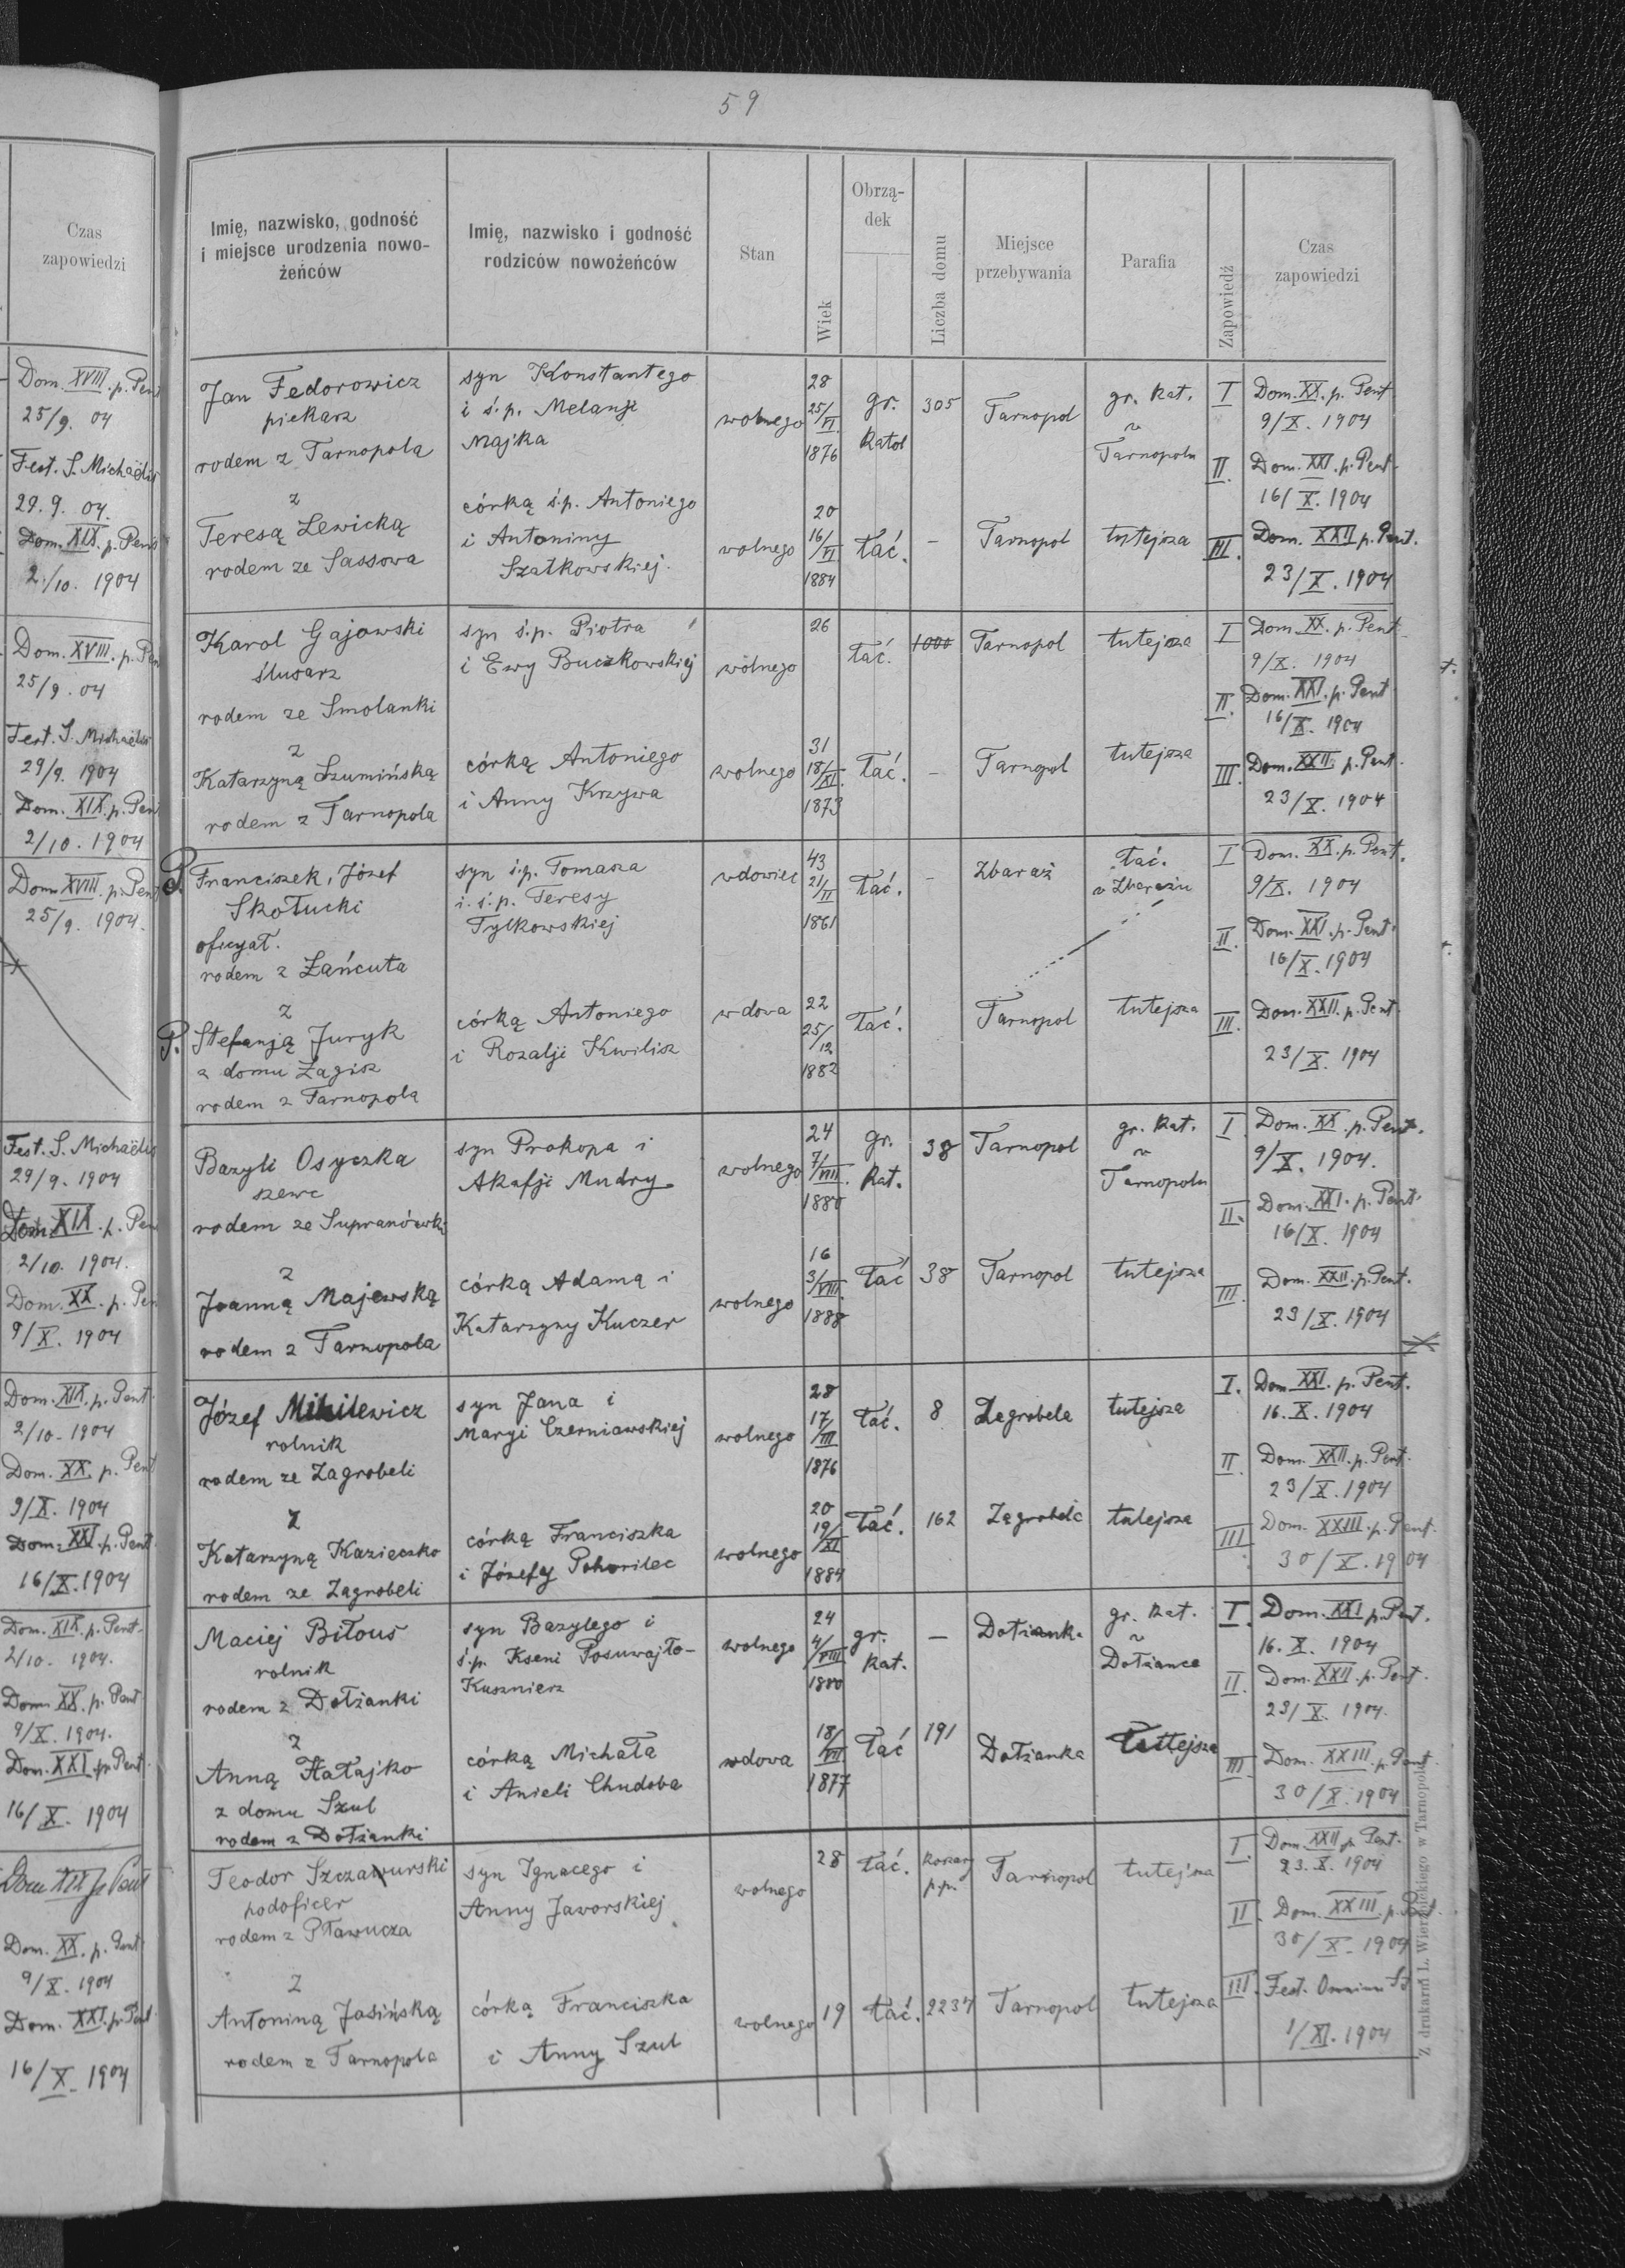 59
Czas
zapowiedzi
Dom. XVIII. p. Pen
25/9. 04
Fest. S. Michaëlis
29. 9. 04.
Dom. XIX. p. Pen
2./10. 1904
Dom. XVIII. p. Pen
25/9. 04
Fest. S. Michaëlis
29/9. 1904
Dom. XIX. p. Pen
2/10. 1904
Dom XVIII. p. Pent
25/9. 1904.
Fest. S. Michaëlis
29/9. 1904
Dom. XIX. p. Pen
2/10. 1904.
Dom. XX. p. Pen
9/X. 1904
Dom. XIX. p. Pent
2/10. 1904
Dom. XX. p. Pent
9/X. 1904
Dom. XXI. p. Pent
16/X. 1904
Dom. XIX. p. Pent.
2/10. 1904.
Dom XX. p. Pent
9/X. 1904.
Dom. XXI. p. Pent.
16/X. 1904
Dom XIX p Pent
Dom. XX. p. Pent
9/X. 1904
Dom. XXI. p. Pent.
16/X. 1904
Imię, nazwisko, godność
i miejsce urodzenia nowo-
żeńców
Imię, nazwisko i godność
rodziców nowożeńców
Stan
Wiek
Obrzą-
dek
Liczba domu
Miejsce
przebywania
Parafia
Zapowiedź
Czas
zapowiedzi
Jan Fedorowicz
piekarz
rodem z Tarnopola
syn Konstantego
i ś.p. Melanji
Majka
wolnego
28
25/VI
1876
gr.
katol
305
Tarnopol
gr. kat.
w
Tarnopolu
I Dom. XX. p. Pent
9/X. 1904
II Dom. XXI. p. Pent.
16/X. 1904
z
Teresą Lewicką
rodem ze Sassowa
córką ś.p. Antoniego
i Antoniny
Szatkowskiej
wolnego
20
16/VI
1884
łać.
-
Tarnopol
tutejsza
III. Dom. XXII p. Pent.
23/X. 1904
Karol Gajowski
ślusarz
rodem ze Smolanki
syn ś.p. Piotra
i Ewy Buczkowskiej
wolnego
26
łać.
1000
Tarnopol
tutejsza
I Dom. XX. p. Pent
9/X. 1904
II. Dom. XXI. p. Pent
16/X. 1904
z
Katarzyną Szumińską
rodem z Tarnopola
córką Antoniego
i Anny Krzywa
wolnego
31
18/XI.
1873
łać.
-
Tarnopol
tutejsza
III. Dom. XXII. p. Pent.
23/X. 1904
P. Franciszek, Józef
Skołucki
oficyał.
rodem z Łańcuta
syn ś.p. Tomasza
i ś.p. Teresy
Tylkowskiej
wdowiec
43
21/II
1861
łać.
-
Zbaraż
łać.
w Zbarażu
I Dom. XX. p. Pent.
9/X. 1904
II. Dom. XXI. p. Pent.
16/X. 1904
z
P. Stefanją Juryk
z domu Zagisz
rodem z Tarnopola
córką Antoniego
i Rozalji Kwilisz
wdowa
22
25/12
1882
łać.
Tarnopol
tutejsza
III. Dom. XXII. p. Pent
23/X. 1904
Bazyli Osyczka
szewc
rodem ze Supranówki
syn Prokopa i
Akafji Mudry
wolnego
24
7/VIII.
1880
gr.
kat.
38
Tarnopol
gr. kat.
w
Tarnopolu
I. Dom. XX. p. Pent.
9/X. 1904.
II. Dom. XXI. p. Pent.
16/X. 1904
z
Joanną Majewską
rodem z Tarnopola
córką Adama i
Katarzyny Kuczer
wolnego
16
3/VIII.
1888
łać
38
Tarnopol
tutejsza
III. Dom. XXII. p. Pent.
23/X. 1904
Józef Mikilewicz
rolnik
rodem ze Zagrobeli
syn Jana i
Maryi Czerniawskiej
wolnego
28
17/III
1876
łać.
8
Zagrobela
tutejsza
I. Dom. XXI. p. Pent.
16. X. 1904
II Dom. XXII. p. Pent.
23/X. 1904
z
Katarzyną Kazieczko
rodem ze Zagrobeli
córką Franciszka
i Józefy Pohorilec
wolnego
20
19/XI
1884
łać.
162
Zagrobela
tutejsza
III Dom. XXIII. p. Pent.
30/X. 1904
Maciej Biłous
rolnik
rodem z Dołżanki
syn Bazylego i
ś.p. Kseni Posuwajło-
Kusznierz
wolnego
24
4/VIII
1880
gr.
kat.
-
Dołżanka
gr. kat.
w
Dołżance
I. Dom. XXI p. Pent.
16. X. 1904
II. Dom. XXII. p. Pent.
23/X. 1904.
z
Anną Hałajko
z domu Szul
rodem z Dołżanki
córką Michała
i Anieli Chudoba
wdowa
18/VII
1877
łać
191
Dołżanka
Tutejsza
III Dom. XXIII. p. Pent.
30/X. 1904
Teodor Szczawurski
podoficer
rodem z Pławucza
syn Ignacego i
Anny Jaworskiej
wolnego
28
łać.
koszary
p.p.
Tarnopol
tutejsza
I. Dom. XXII p. Pent.
23. X. 1904
II. Dom. XXIII. p. Pent.
30/X. 1904
z
Antoniną Jasińską
rodem z Tarnopola
córką Franciszka
i Anny Szul
wolnego
19
łać.
2237
Tarnopol
tutejsza
III. Fest. Omnium SS
1/XI. 1904
Z drukarni L. Wierzbickiego w Tarnopolu